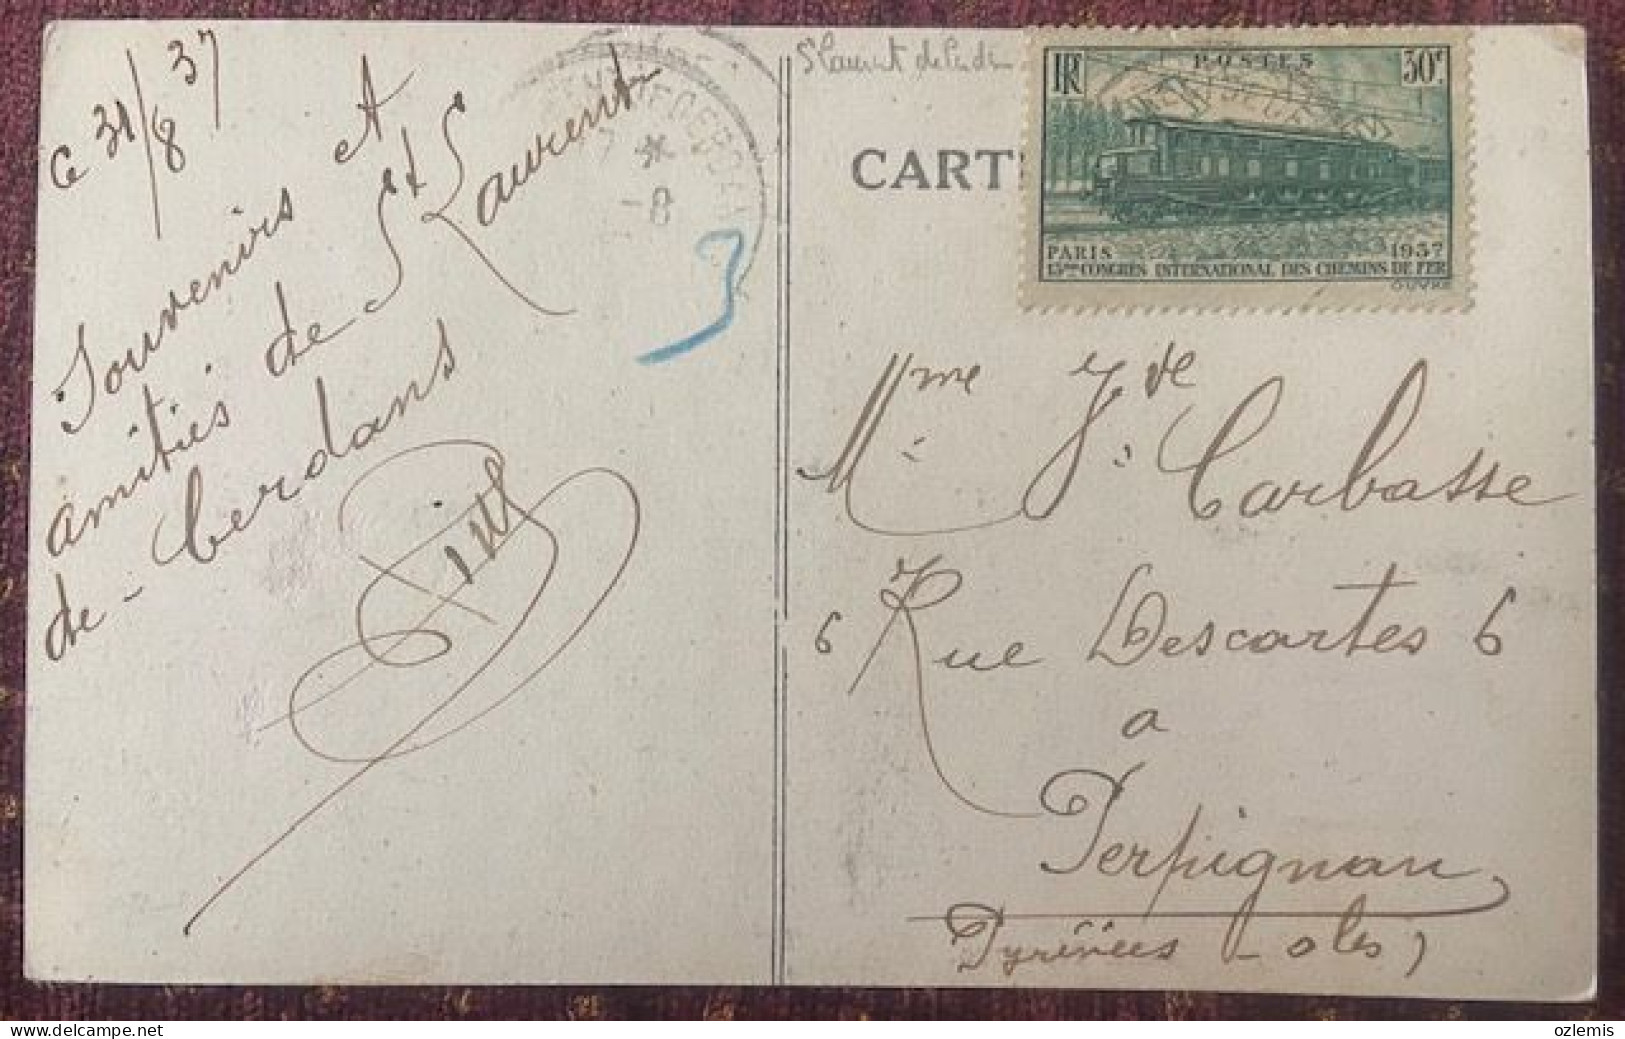 Ce 31/8 37
Souvenirs et
amitiés de St Laurent
de-Cerdans
St Laurent de
CART
RF
POSTES
30c
PARIS 1937
13me CONGRES INTERNATIONAL DES CHEMINS DE FER
OUVRE
Mme Vve Carbasse
6 Rue Descartes 6
a
Perpignan
Pyrénées - oles)
-8
ozlemis
delcampe.net